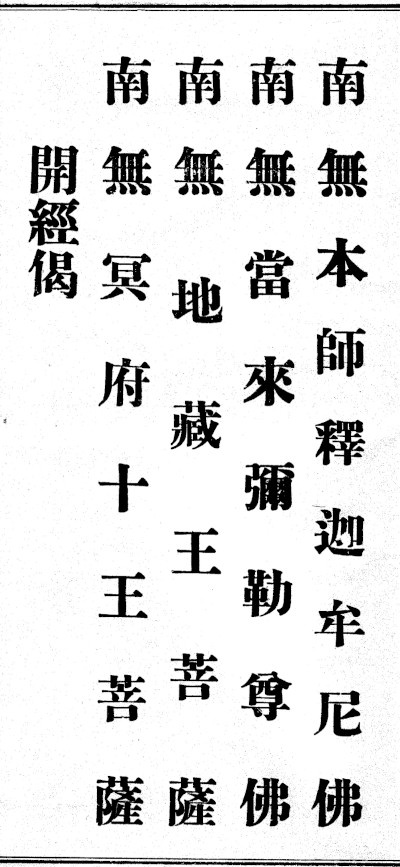 南無本師釋迦牟尼佛
南無當來彌勒尊佛
南無地藏王菩薩
南無冥府十王菩薩
開經偈